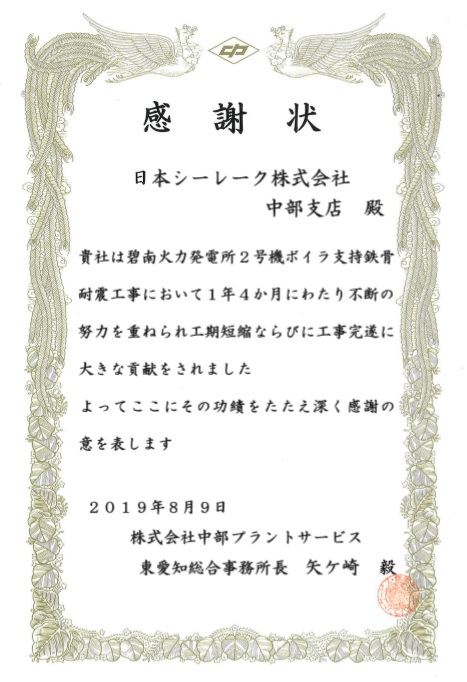 感謝状
日本シーレーク株式会社
中部支店 殿
貴社は碧南火力発電所２号機ボイラ支持鉄骨
耐震工事において１年４か月にわたり不断の
努力を重ねられ工期短縮ならびに工事完遂に
大きな貢献をされました
よってここにその功績をたたえ深く感謝の
意を表します
２０１９年８月９日
株式会社中部プラントサービス
東愛知総合事務所長 矢ケ崎 毅